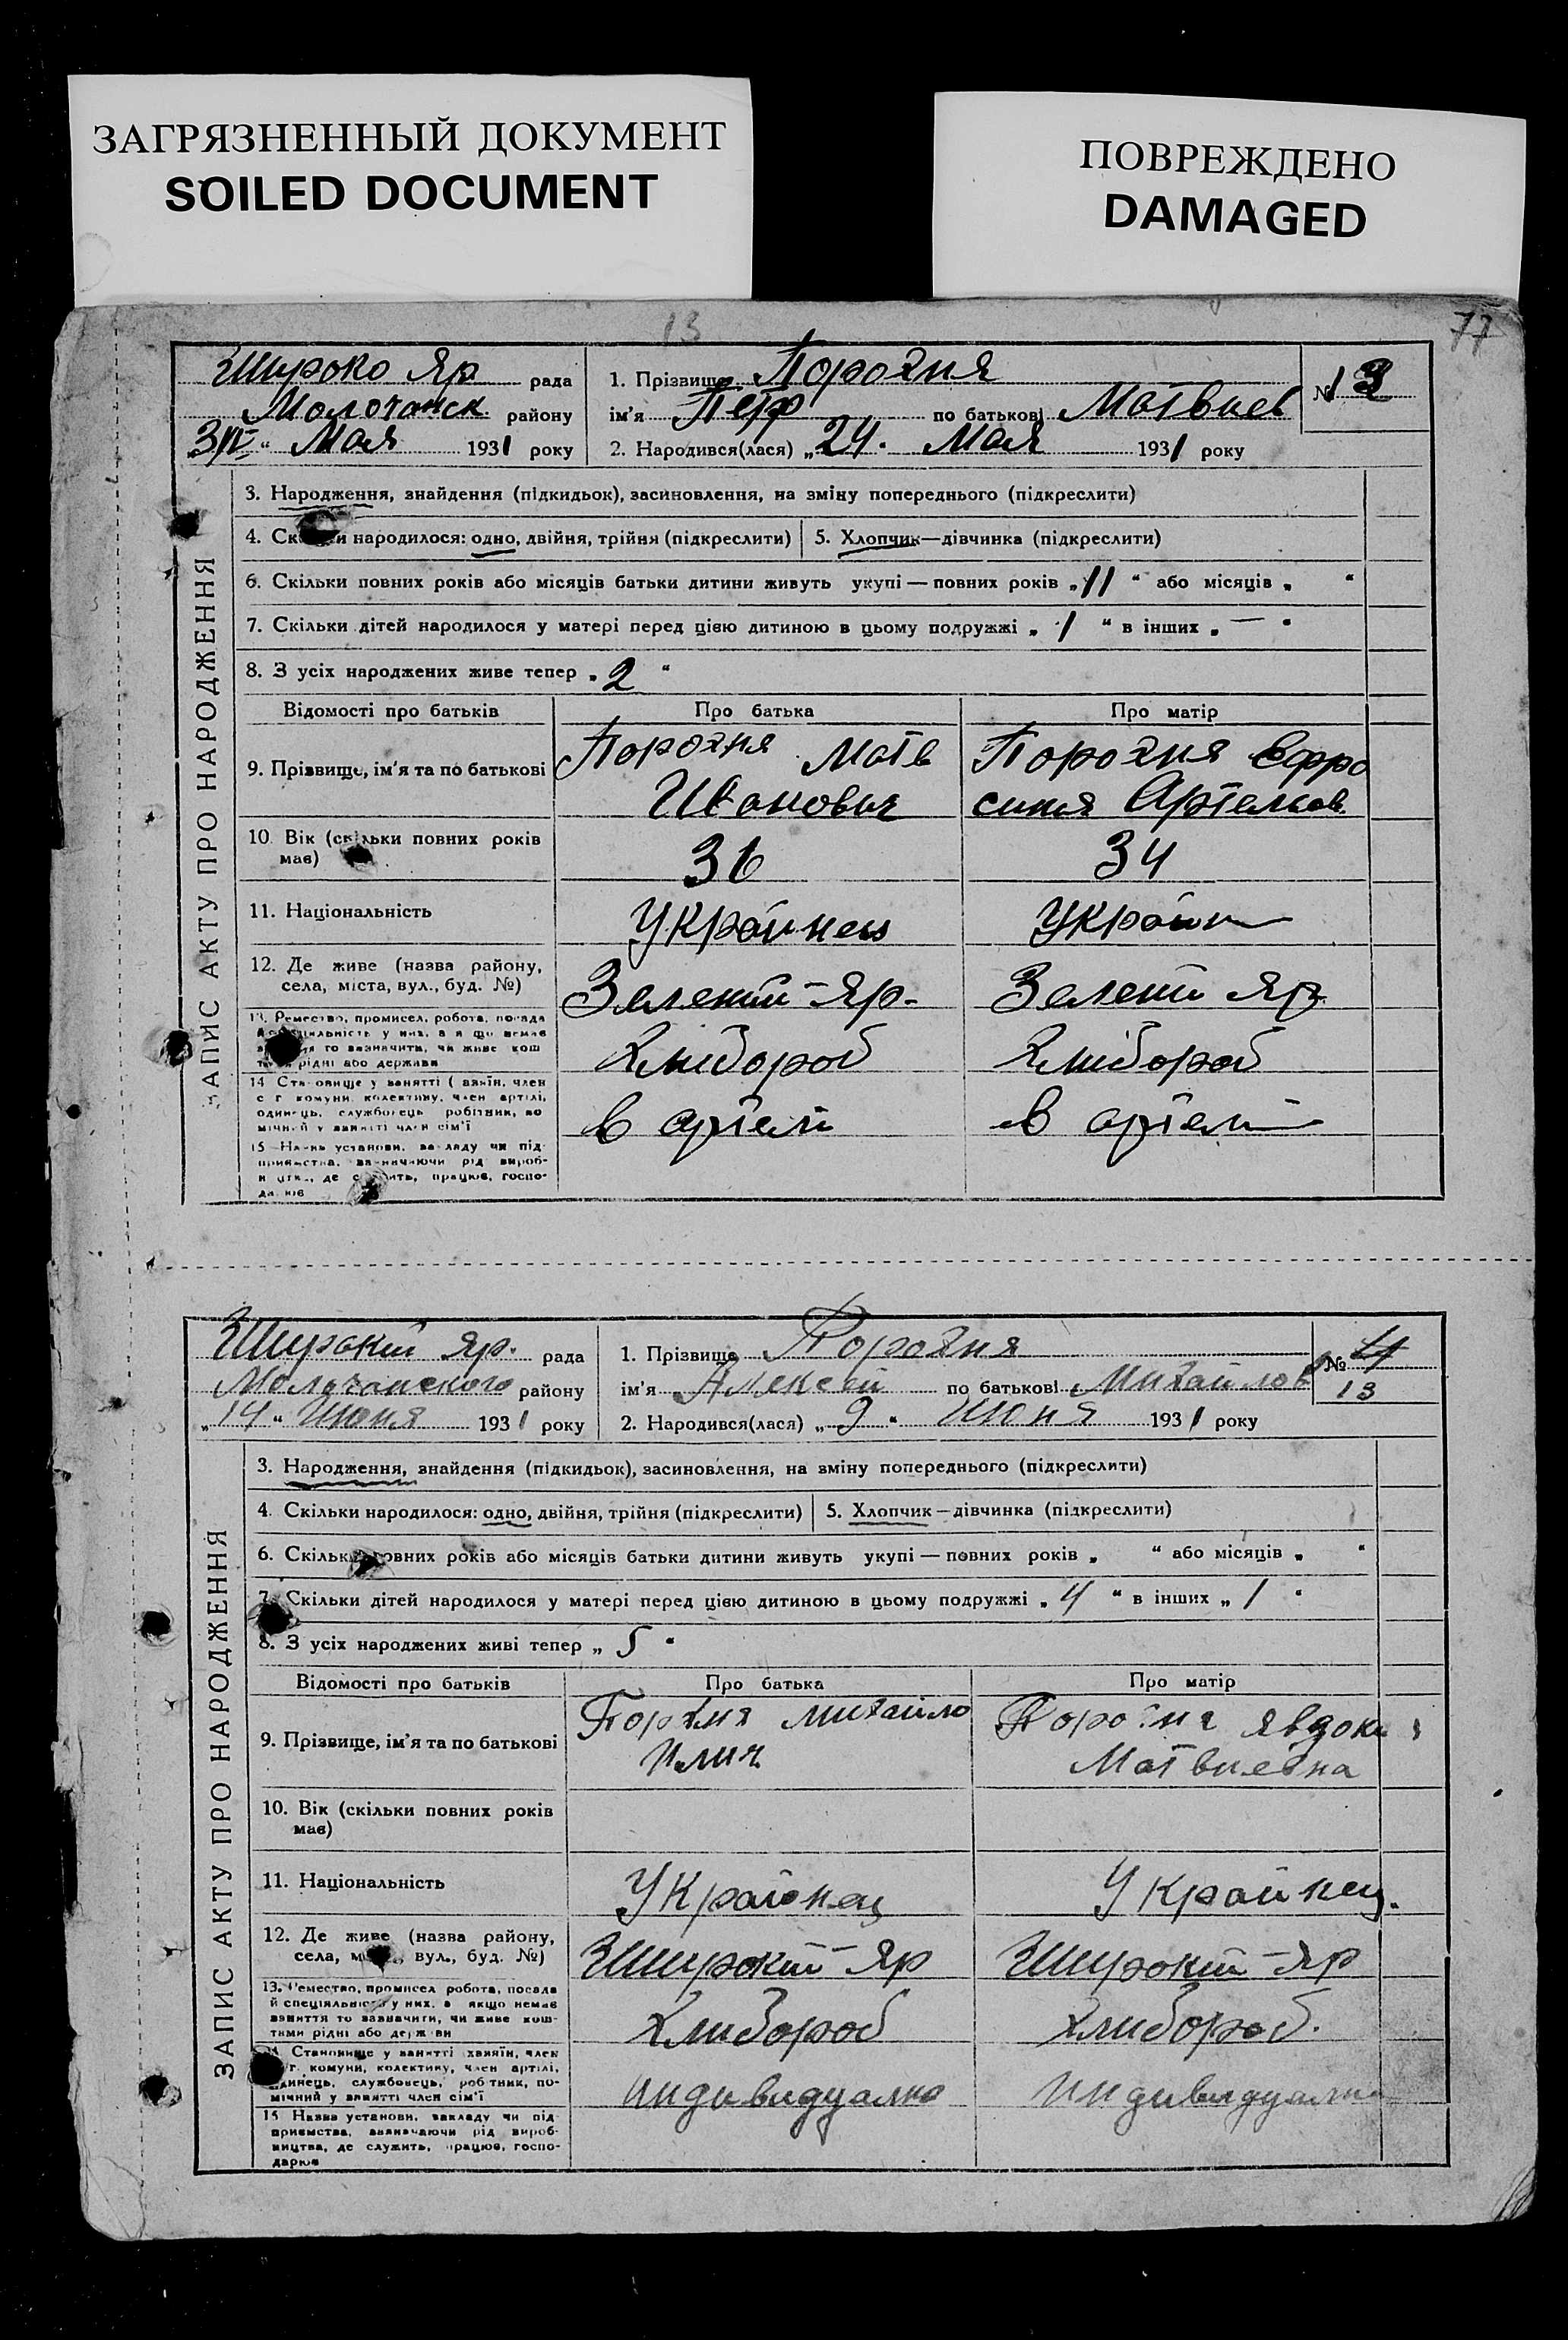 ЗАГРЯЗНЕННЫЙ ДОКУМЕНТ
SOILED DOCUMENT
ПОВРЕЖДЕНО
DAMAGED
13
77
Широко Яр рада
Молочанск району
Мая 1931 року
1. Прізвище Порохня
ім'я Петр по батькові Матвиев
2. Народився(лася) „24. Мая 1931 року
№ 13
ЗАПИС АКТУ ПРО НАРОДЖЕННЯ
3. Народження, знайдення (підкидьок), засиновлення, на зміну попереднього (підкреслити)
4. народилося: одно, двійня, трійня (підкреслити) 5. Хлопчик—дівчинка (підкреслити)
6. Скільки повних років або місяців батьки дитини живуть укупі — повних років „11“ або місяців „ “
7. Скільки дітей народилося у матері перед цією дитиною в цьому подружжі „1“ в інших „—“
8. З усіх народжених живе тепер „2“
Відомості про батьків Про батька Про матір
9. Прізвище, ім'я та по батькові Порохня Матв Порохня Ефро
Иванович синя Артемов.
10. Вік (скільки повних років
має) 36 34
11. Національність Украинец Украин
12. Де живе (назва району,
села, міста, вул., буд. №) Зелений-Яр. Зелени Яр
13. Ремество, промисел, робота, посада
рідні або держава Хлибороб Хлибороб
14 Становище у занятті
с г комуни, колективу, член артілі,
одинець, службовець робітник, по
мічний у занятті член сім'ї в артели в артели
15 Назва установи, закладу чи під
приємства, зазначаючи рід вироб-
Широкий Яр. рада
Молочанского району
„14“ Июня 1931 року
1. Прізвище Порохня
ім'я Алексей по батькові Михайлов
2. Народився(лася) „9“ Июня 1931 року
№ 14
13
ЗАПИС АКТУ ПРО НАРОДЖЕННЯ
3. Народження, знайдення (підкидьок), засиновлення, на зміну попереднього (підкреслити)
4. Скільки народилося: одно, двійня, трійня (підкреслити) 5. Хлопчик—дівчинка (підкреслити)
6. Скільки повних років або місяців батьки дитини живуть укупі — повних років „ “ або місяців „ “
7. Скільки дітей народилося у матері перед цією дитиною в цьому подружжі „4“ в інших „1“
8. З усіх народжених живі тепер „5“
Відомості про батьків Про батька Про матір
9. Прізвище, ім'я та по батькові Порохня Михайло Порохня Явдок
Илич Матвиевна
10. Вік (скільки повних років
має)
11. Національність Украинец Украинец.
12. Де живе (назва району,
села, вул., буд. №) Широкий-Яр Широкий-Яр
13. Ремество, промисел робота, посада
й спеціяльність у них, а якщо немає
заняття то зазначити, чи живе кош-
тами рідні або держави Хлибороб Хлибороб.
Становище у занятті хазяїн, член
комуни, колективу, член артілі,
одинець, службовець, робітник, по-
мічний у занятті член сім'ї индивидуално индивидуално
15 Назва установи, закладу чи під
приємства, зазначаючи рід вироб-
ництва, де служить, працює, госпо-
дарює